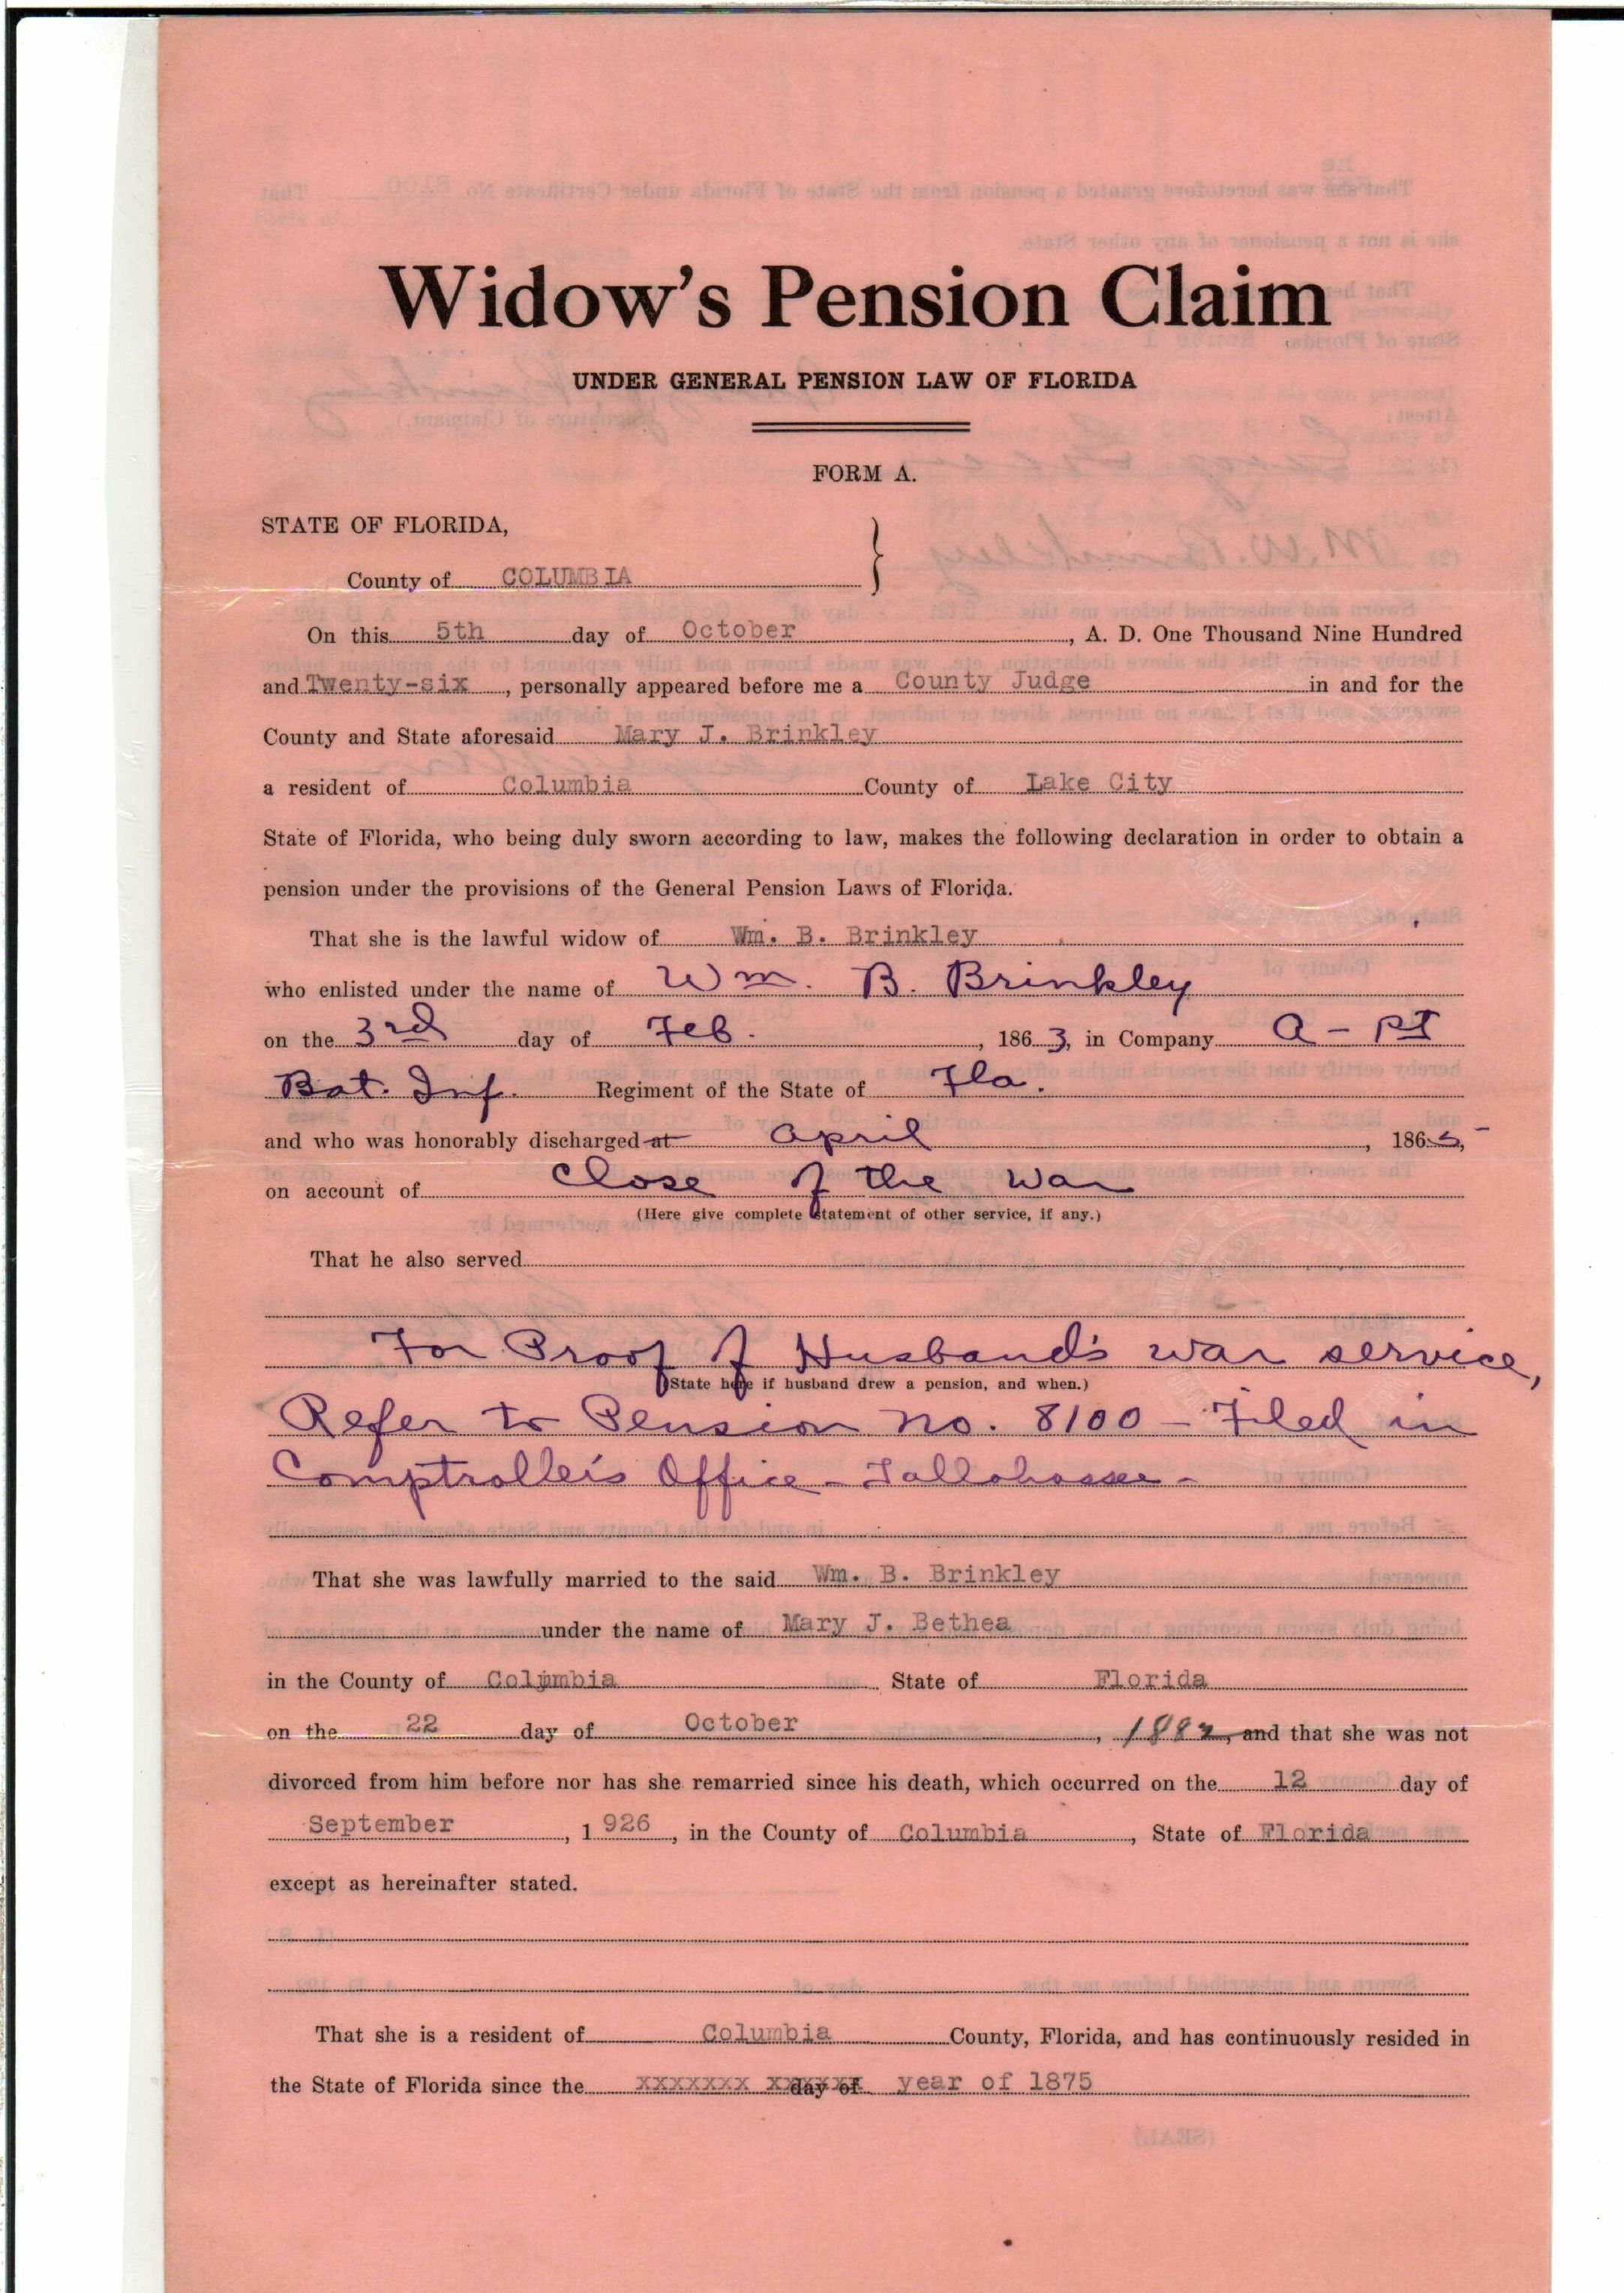 Widow's Pension Claim
UNDER GENERAL PENSION LAW OF FLORIDA
FORM A.
STATE OF FLORIDA,
County of COLUMBIA }
On this 5th day of October, A. D. One Thousand Nine Hundred
and Twenty-six, personally appeared before me a County Judge in and for the
County and State aforesaid Mary J. Brinkley
a resident of Columbia County of Lake City
State of Florida, who being duly sworn according to law, makes the following declaration in order to obtain a
pension under the provisions of the General Pension Laws of Florida.
That she is the lawful widow of Wm. B. Brinkley
who enlisted under the name of Wm. B. Brinkley
on the 3rd day of Feb., 1863, in Company A -
Bat. Inf. Regiment of the State of Fla.
and who was honorably discharged at April, 1865,
on account of Close of the War
(Here give complete statement of other service, if any.)
That he also served
For Proof of Husband's war service,
(State here if husband drew a pension, and when.)
Refer to Pension No. 8100 - Filed in
Comptroller's Office - Tallahassee -
That she was lawfully married to the said Wm. B. Brinkley
under the name of Mary J. Bethea
in the County of Columbia State of Florida
on the 22 day of October, 1882, and that she was not
divorced from him before nor has she remarried since his death, which occurred on the 12 day of
September, 1 926, in the County of Columbia, State of Florida
except as hereinafter stated.
That she is a resident of Columbia County, Florida, and has continuously resided in
the State of Florida since the xxxxxxx xxxxxxx day of year of 1875